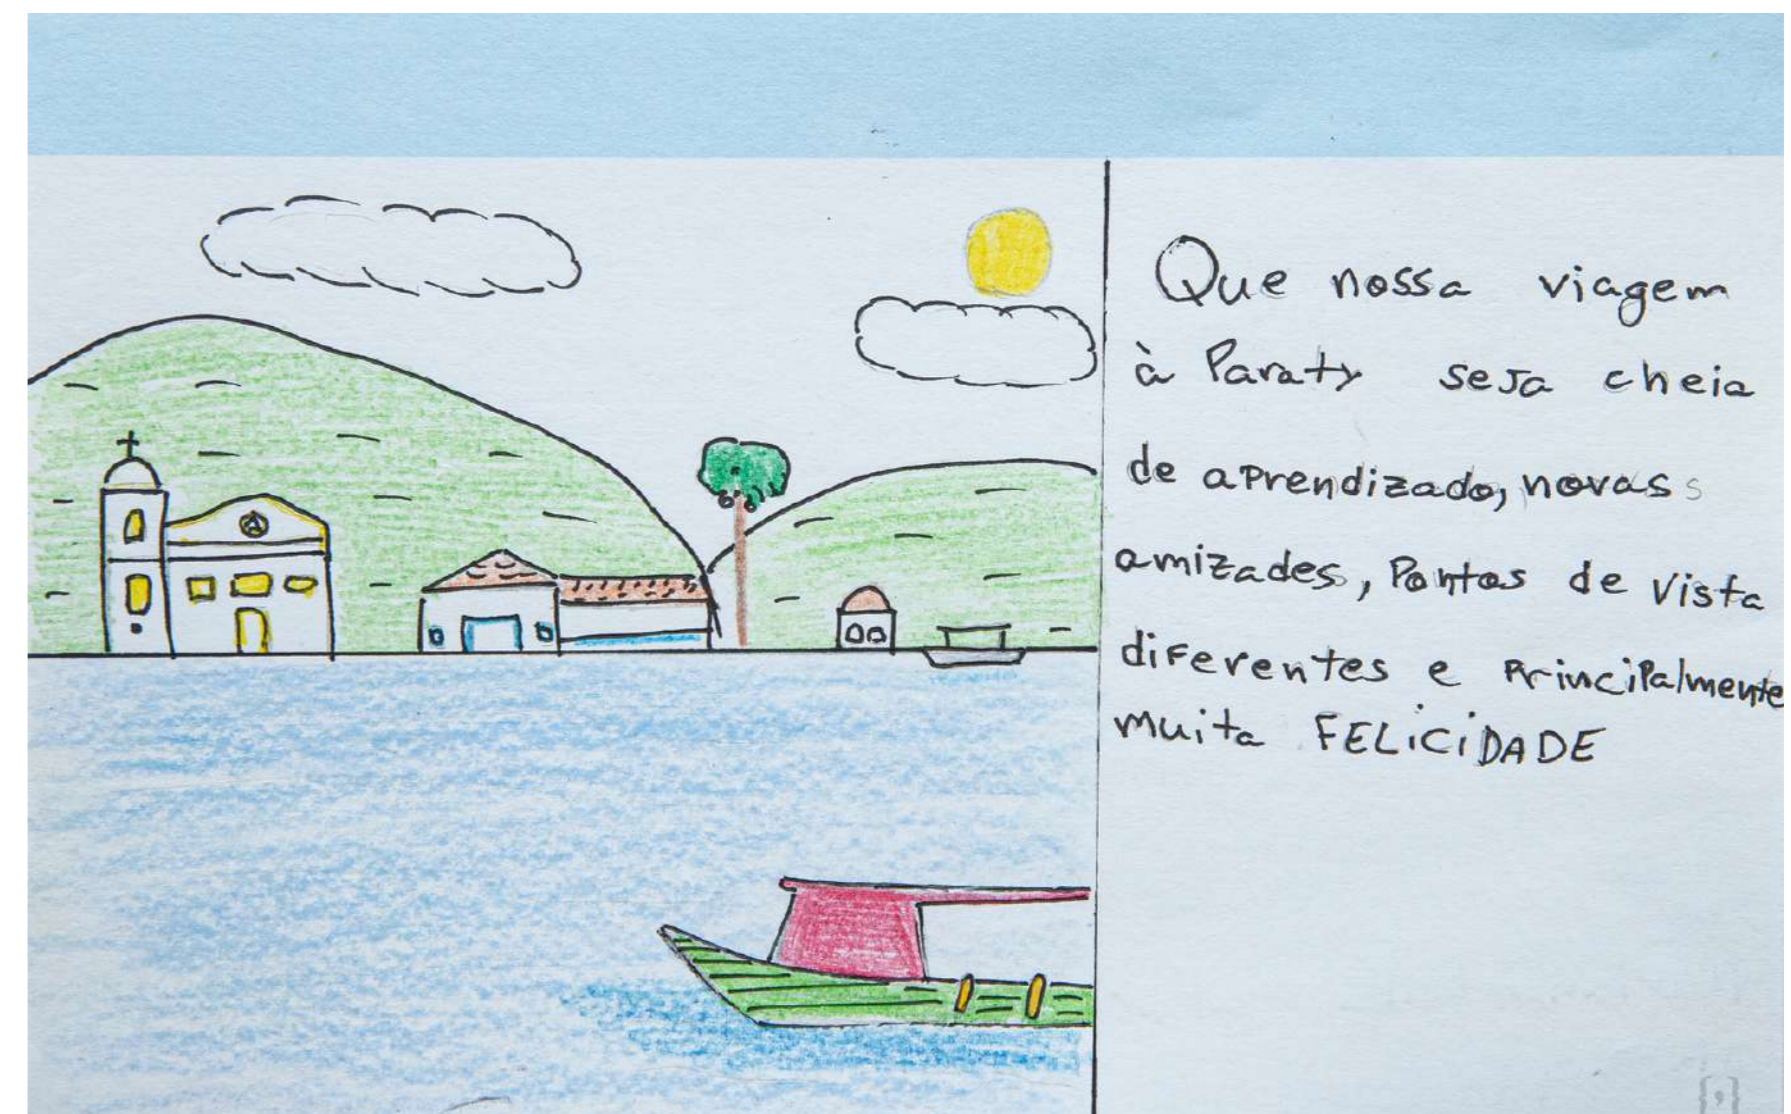 Que nossa viagem
à Paraty seja cheia
de aprendizado, novas
amizades, Pontos de vista
diferentes e Principalmente
muita FELiCiDADE